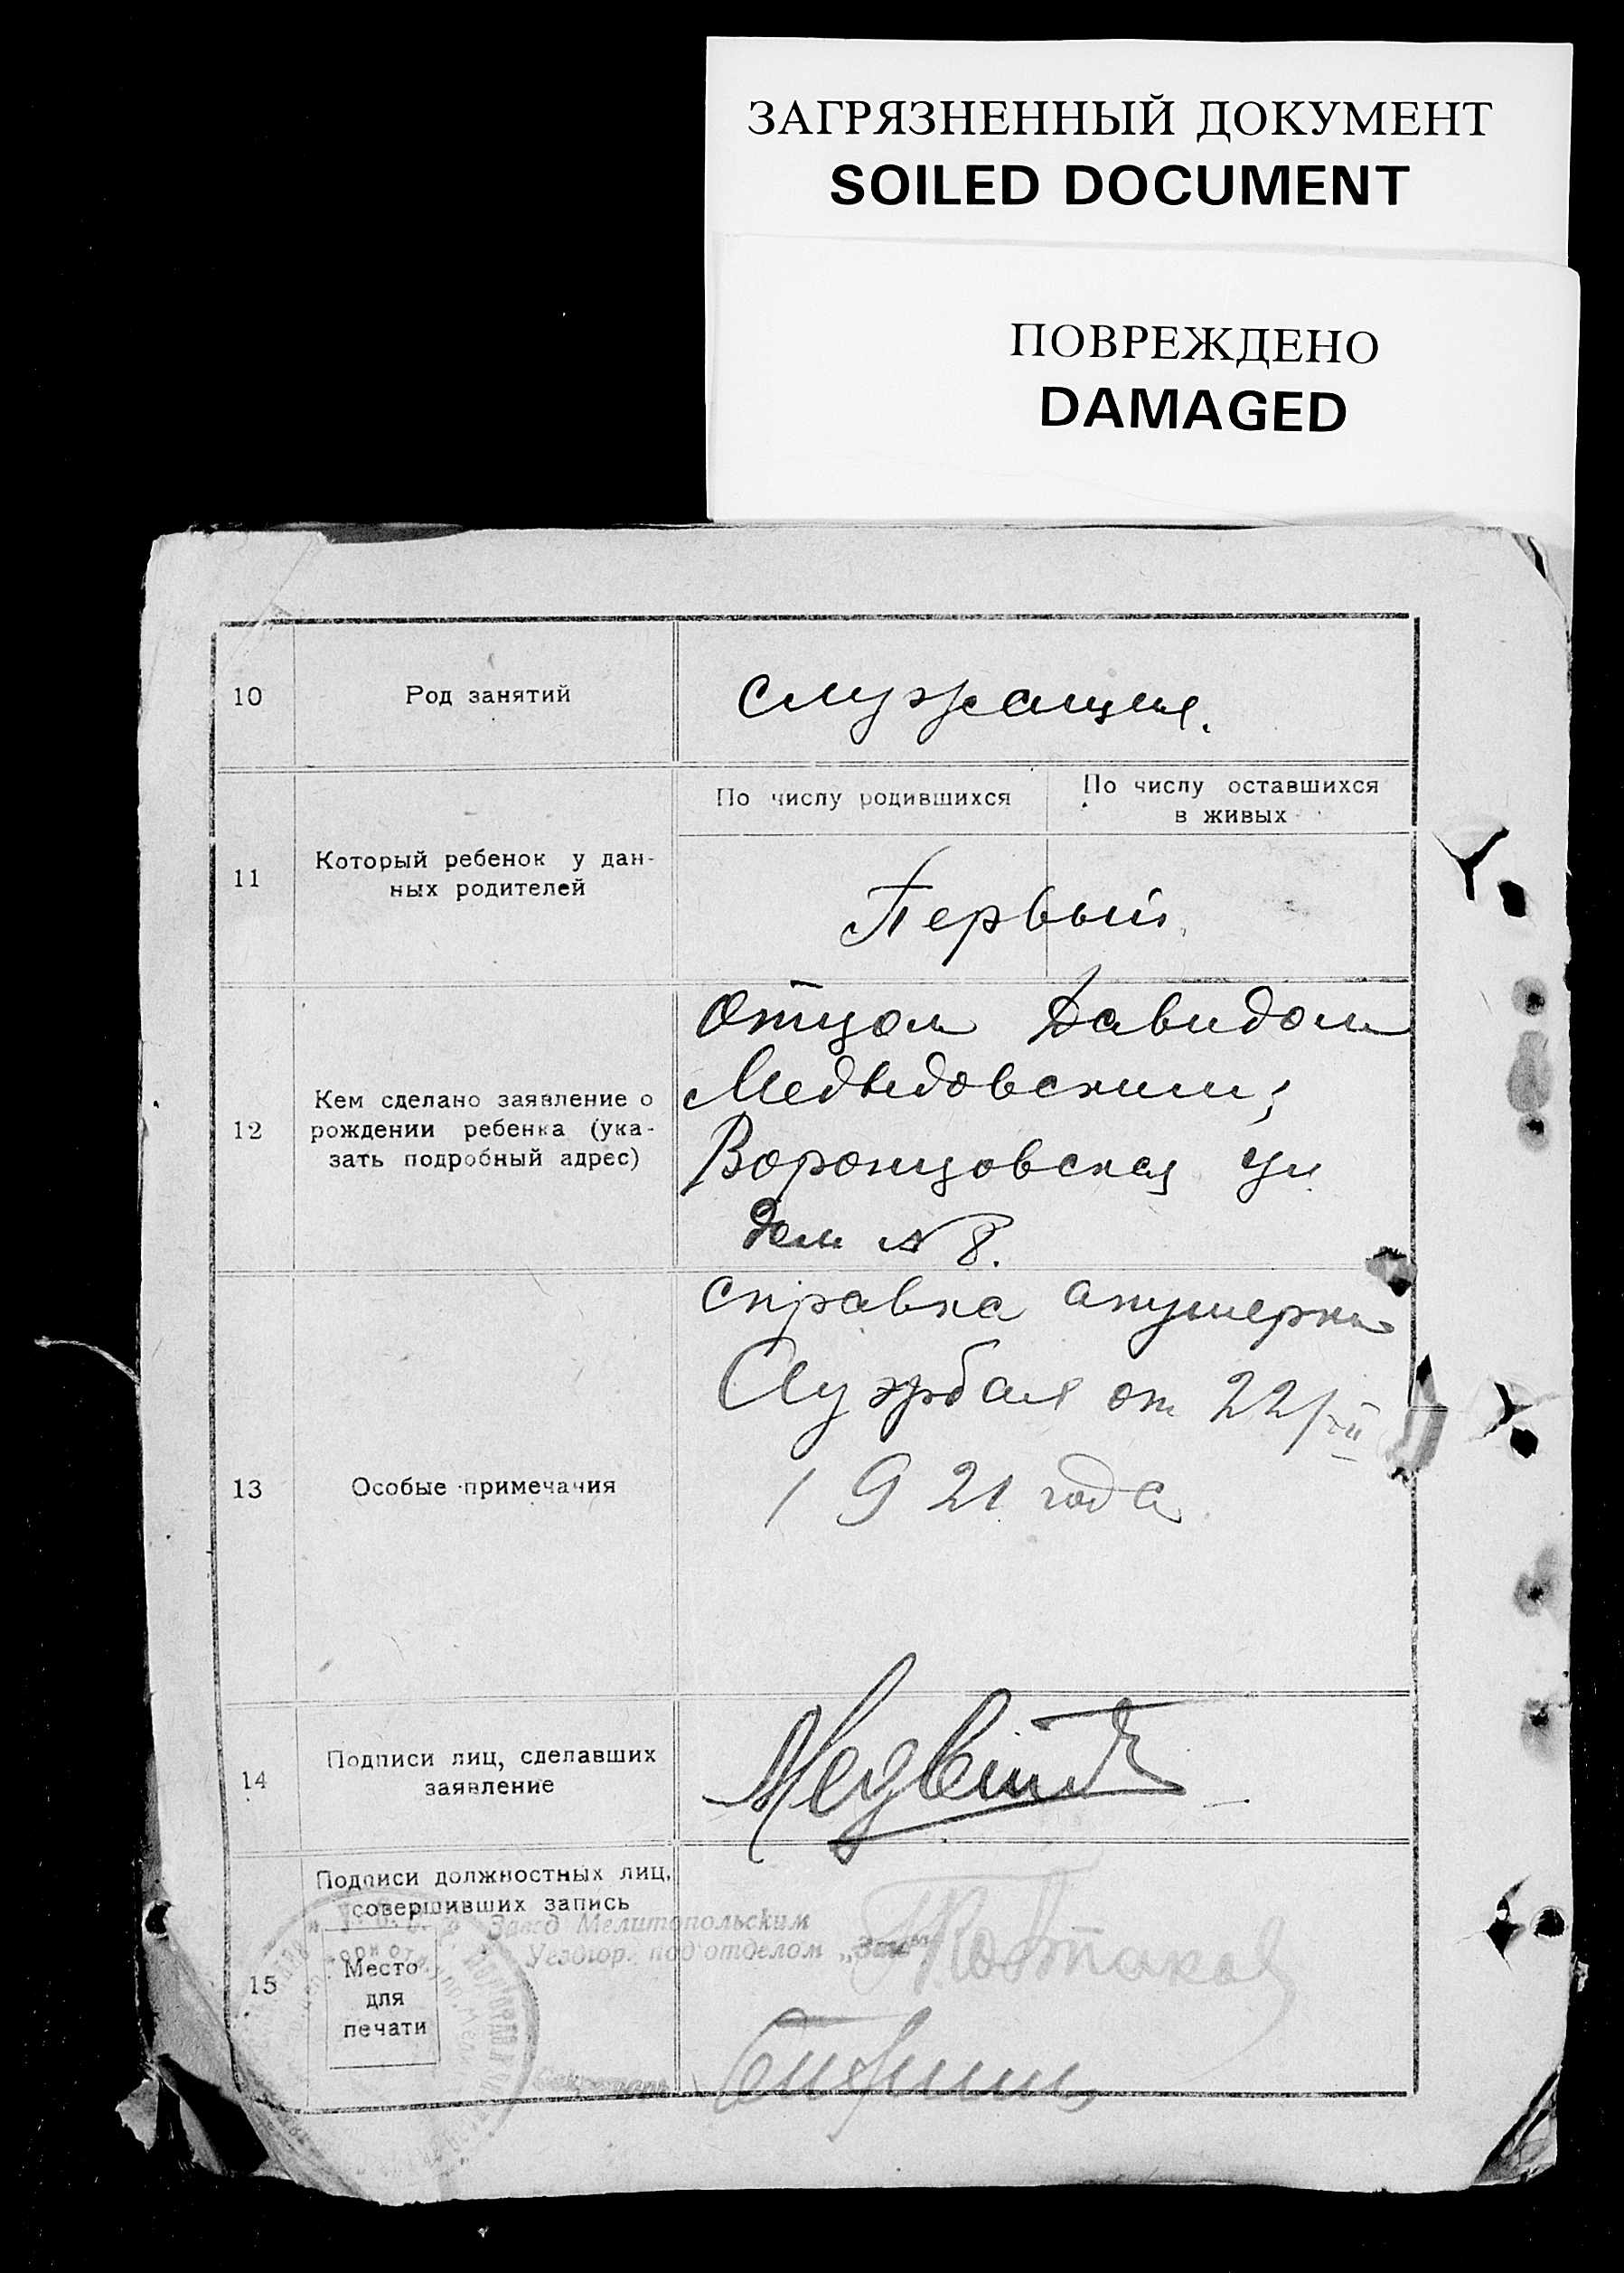 ЗАГРЯЗНЕННЫЙ ДОКУМЕНТ
SOILED DOCUMENT
ПОВРЕЖДЕНО
DAMAGED
10
Род занятий
служащие.
11
Который ребенок у дан-
ных родителей
По числу родившихся
По числу оставшихся
в живых
Первый
12
Кем сделано заявление о
рождении ребенка (ука-
зать подробный адрес)
Отцом Давидом
Медведовским;
Воронцовская ул
дом № 8.
13
Особые примечания
справка акушерки
от 22/
1921 года
14
Подписи лиц, сделавших
заявление
15
Подписи должностных лиц,
совершивших запись
Место
для
печати
Завед Мелитопольским
Уездгор. подотделом „Загс“
Секретарь